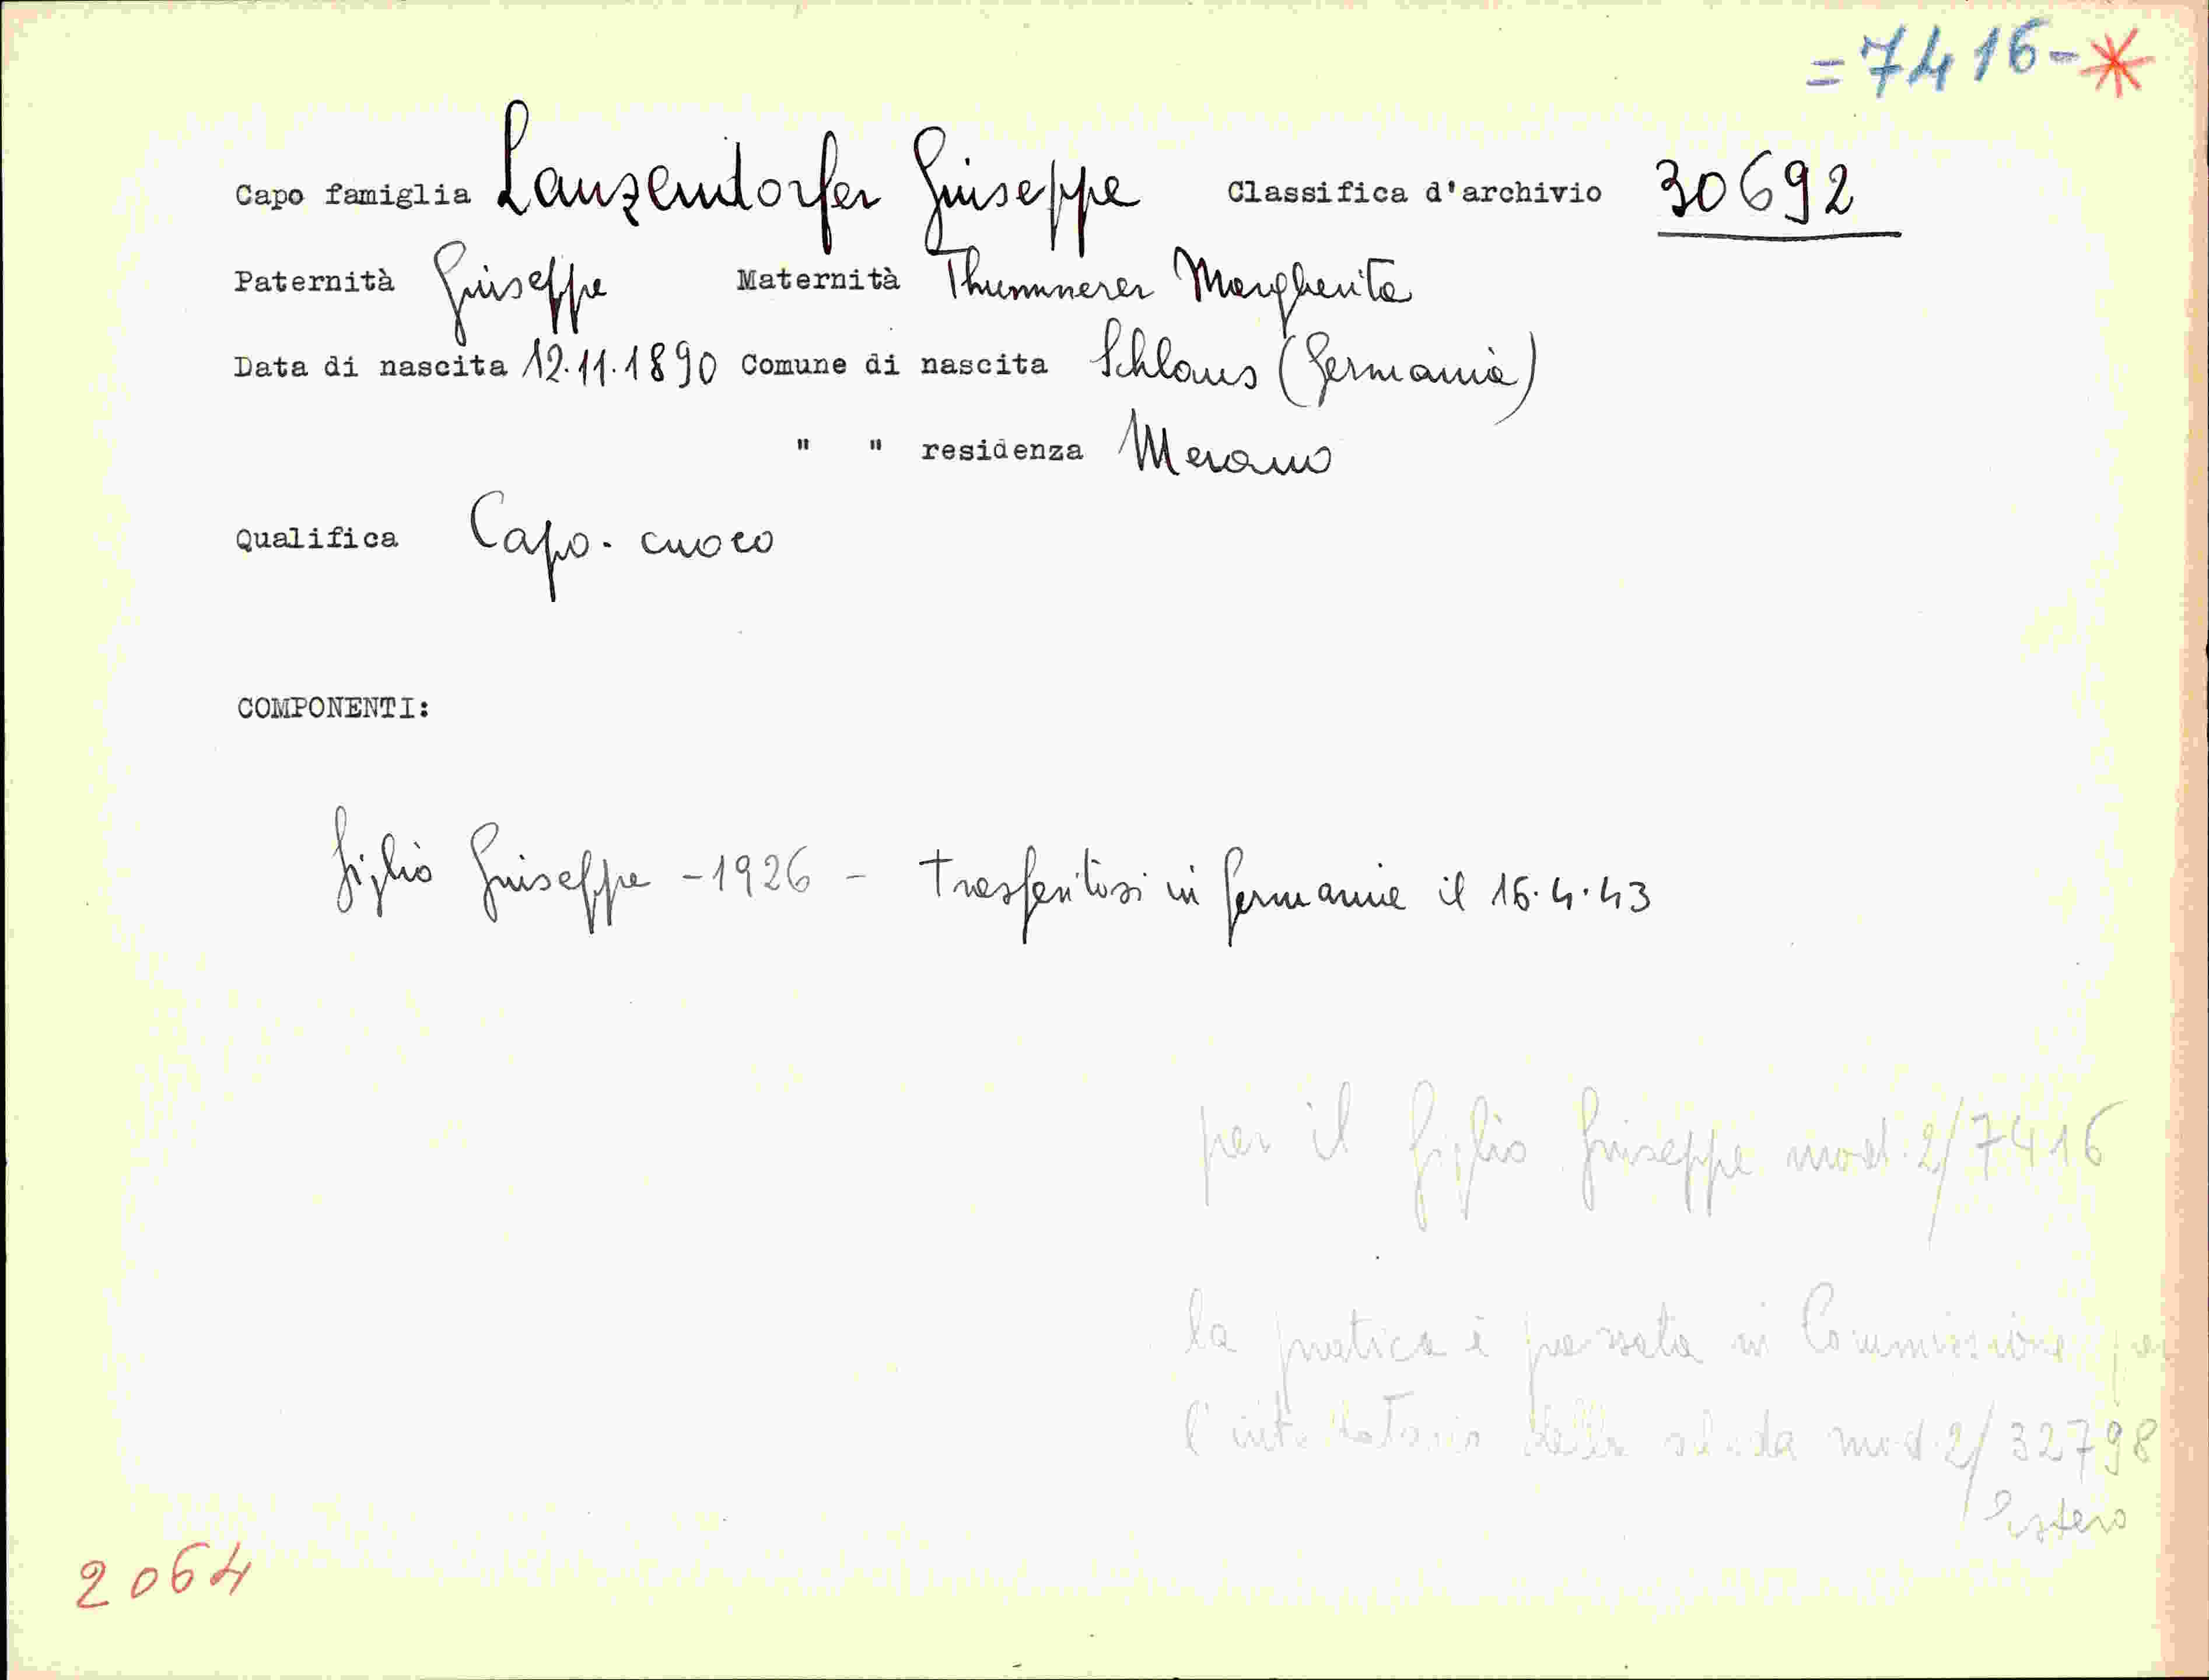 =7416-*
Capo famiglia Lanzendorfer Giuseppe Classifica d'archivio 30692
Paternità Giuseppe Maternità Thummerer Margherita
Data di nascita 12.11.1890 Comune di nascita Schlaus (Germania)
" " residenza Merano
Qualifica Capo-cuoco
COMPONENTI:
figlio Giuseppe -1926- trasferitosi in Germania il 16.4.43
per il figlio Giuseppe mod. 2/7416
la pratica è passata in Commissione per
l'intestatario della scheda mod. 2/32798
Estero
2064